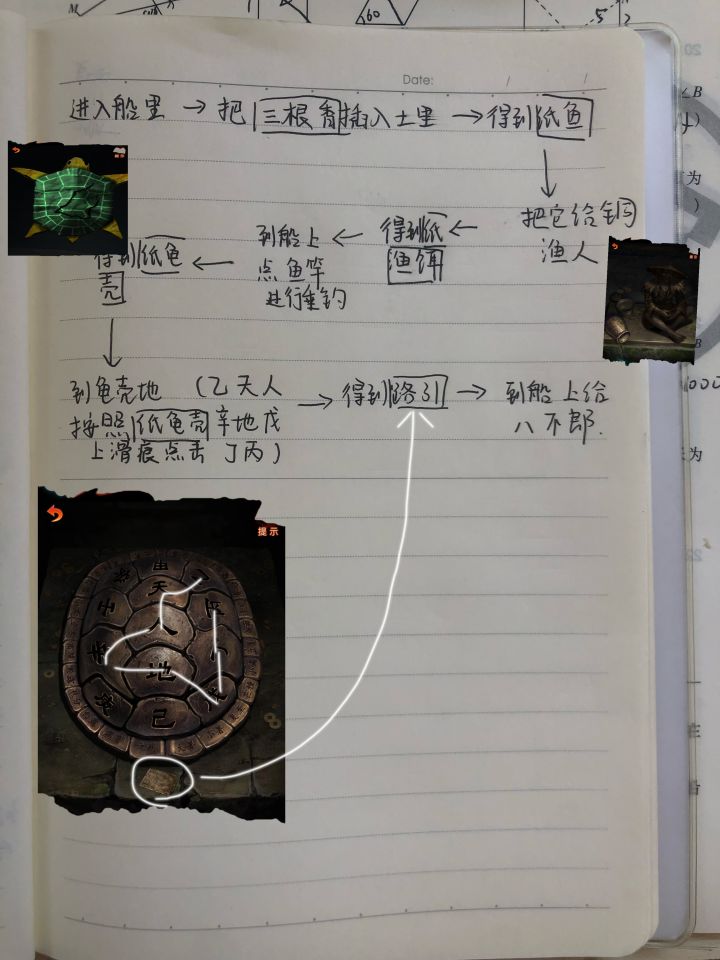 Date:
进入船里 → 把三根香插入土里 → 得到纸鱼
把它给铜
渔人
得到纸
渔饵
到船上
点鱼竿
进行垂钓
得到纸龟
壳
到龟壳地 (乙天人
按照纸龟壳辛地戊
上滑痕点击 丁丙)
得到路引 →
到船上给
八不郎.
提示
天
人
地
己
60
5
B
为